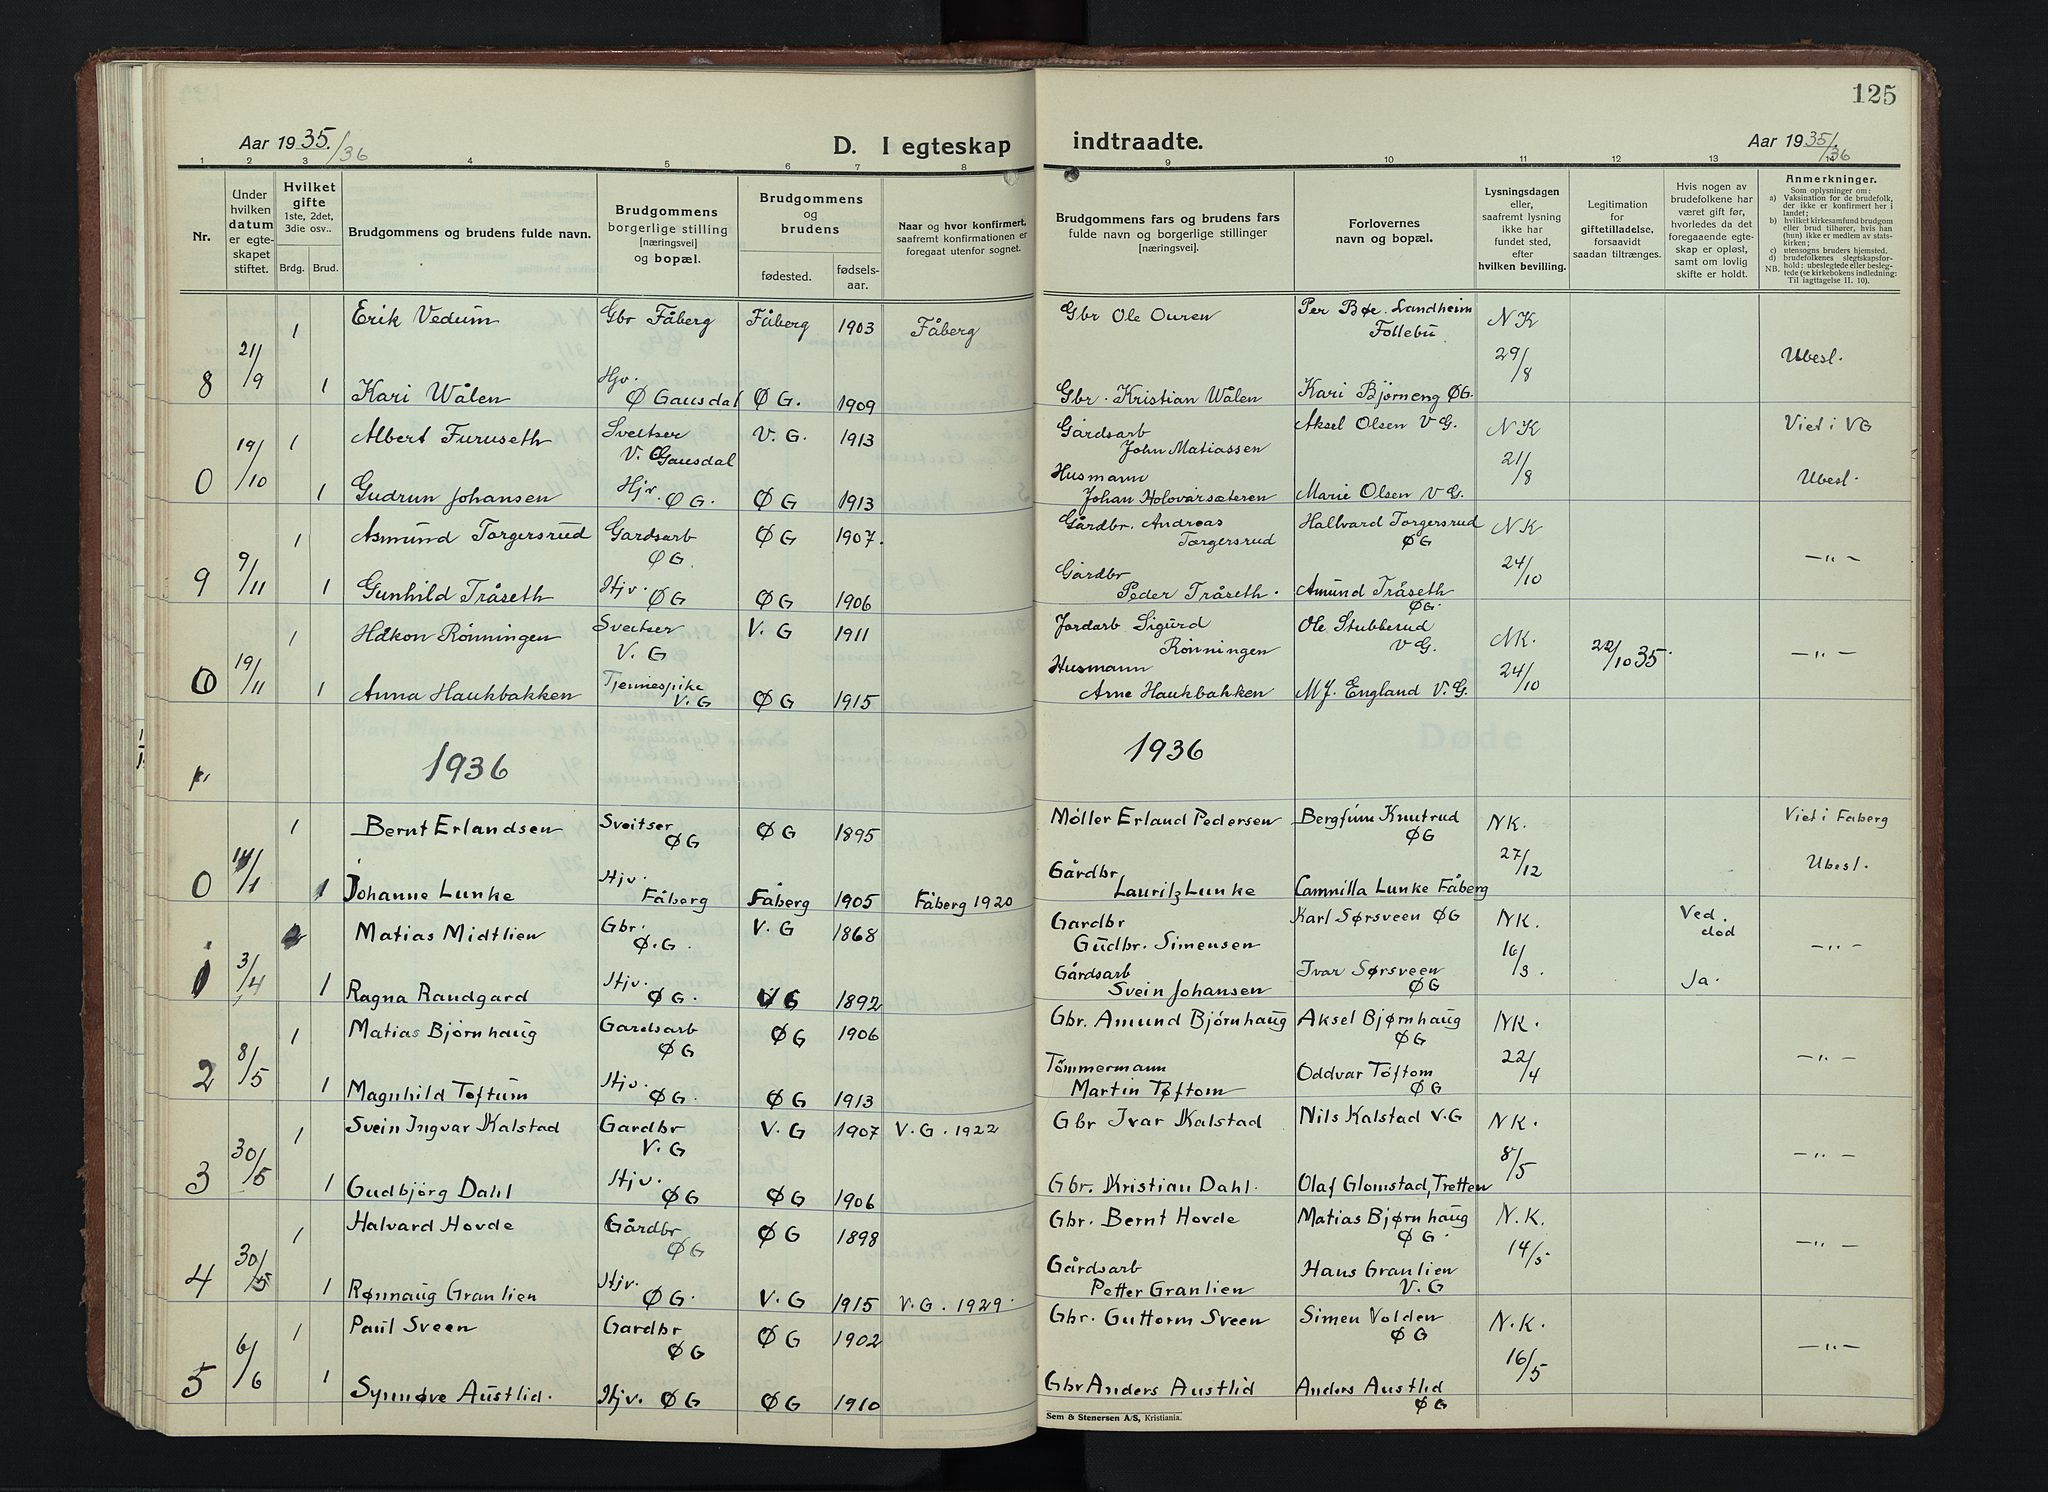 125
Aar 1935./36
D. I egteskap indtraadte.
Aar 1935/36
1 2 3 4 5 6 7 8 9 10 11 12 13 14
Nr.
Under hvilken datum er egteskapet stiftet.
Hvilket gifte 1ste, 2det, 3die osv..
Brdg. Brud.
Brudgommens og brudens fulde navn.
Brudgommens borgerlige stilling [næringsvei] og bopæl.
Brudgommens og brudens
fødested. fødselsaar.
Naar og hvor konfirmert, saafremt konfirmationen er foregaat utenfor sognet.
Brudgommens fars og brudens fars fulde navn og borgerlige stillinger [næringsvei].
Forlovernes navn og bopæl.
Lysningsdagen eller, saafremt lysning ikke har fundet sted, efter hvilken bevilling.
Legitimation for giftetilladelse, forsaavidt saadan tiltrænges.
Hvis nogen av brudefolkene har været gift før, hvorledes da det foregaaende egteskap er opløst, samt om lovlig skifte er holdt.
Anmerkninger.
Som oplysninger om:
a) Vaksination for de brudefolk, der ikke er konfirmert her i landet;
b) hvilket kirkesamfund brudgom eller brud tilhører, hvis han (hun) ikke er medlem av statskirken;
c) utensogns bruders hjemsted.
d) brudefolkenes slegtskapsforhold: ubeslegtede eller beslegtede (se kirkebokens indledning:
NB. Til iagttagelse II. 10).
8 21/9 1 Erik Vedum Gbr Fåberg Fåberg 1903 Fåberg Gbr Ole Ouren Per Bøe. Landheim Follebu N K 29/8 Ubesl.
1 Kari Wålen Hjv. Ø Gausdal Ø G. 1909 Gbr. Kristian Wålen Kari Bjørneng ØG.
0 19/10 1 Albert Furuseth Sveitser V. Gausdal V. G. 1913 Gårdsarb John Matiassen Aksel Olsen V G. N K 21/8 Viet i VG Ubesl.
1 Gudrun Johansen Hjv. Ø G. Ø G 1913 Husmann Johan Holovarsæteren Marie Olsen V G.
9 9/11 1 Asmund Torgersrud Gardsarb Ø G. Ø G 1907. Gårdbr. Andreas Torgersrud Hallvard Torgersrud ØG N K 24/10 —"—
1 Gunhild Tråseth Hjv. Ø G Ø G 1906 Gårdbr Peder Tråseth. Amund Tråseth ØG.
0 19/11 1 Håkon Rønningen Sveitser V. G V. G 1911 Jordarb Sigurd Rønningen Ole Stubberud V G. NK. 24/10 22/10 35. —"—
1 Anna Haukbakken Tjenestpike V. G Ø G 1915 Husmann Arne Haukbakken M J. England V. G.
1936 1936
0 1 Bernt Erlandsen Sveitser ØG ØG 1895 Møller Erland Pedersen Bergfinn Knutrud ØG NK. 27/12 Viet i Faberg Ubesl.
1 Johanne Lunke Hjv. Fåberg Fåberg 1905 Fåberg 1920 Gårdbr Lauritz Lunke Cammilla Lunke Fåberg
1 3/4 2 Matias Midtlien Gbr. Ø.G. V. G 1868 Gardbr Gudbr. Simensen Karl Sørsveen ØG NK. 16/3. Ved. død Ja. —"—
1 Ragna Randgard Hjv. ØG. V G 1892 Gårdsarb Svein Johansen Ivar Sørsveen ØG
2 8/5 1 Matias Bjørnhaug Gardsarb ØG ØG 1906 Gbr. Amund Bjørnhaug Aksel Bjørnhaug ØG NK. 22/4 —"—
1 Magnhild Toftum Hjv. ØG. ØG 1913 Tømmermann Martin Tøftom Oddvar Toftom ØG
3 30/5 1 Svein Ingvar Kalstad Gardbr V. G V. G 1907 V. G. 1922 Gbr Ivar Kalstad Nils Kalstad V. G NK. 8/5 —"—
1 Gudbjörg Dahl Hjv. ØG ØG 1906 Gbr. Kristian Dahl. Olaf Glomstad, Tretten
4 30/5 1 Halvard Hovde Gårdbr ØG ØG 1898 Gbr. Bernt Hovde Matias Bjørnhaug ØG. N. K. 14/5 —"—
1 Rønnaug Granlien Hjv. ØG. V. G 1915 V. G. 1929. Gårdsarb Petter Granlien Hans Granlien V. G
5 6/6 1 Paul Sveen Gardbr ØG ØG 1902 Gbr. Guttorm Sveen Simen Volden ØG N. K. 16/5 —"—
1 Synnøve Austlid. Hjv. ØG ØG 1910 Gbr Anders Austlid Anders Austlid ØG
Sem & Stenersen A/S, Kristiania.